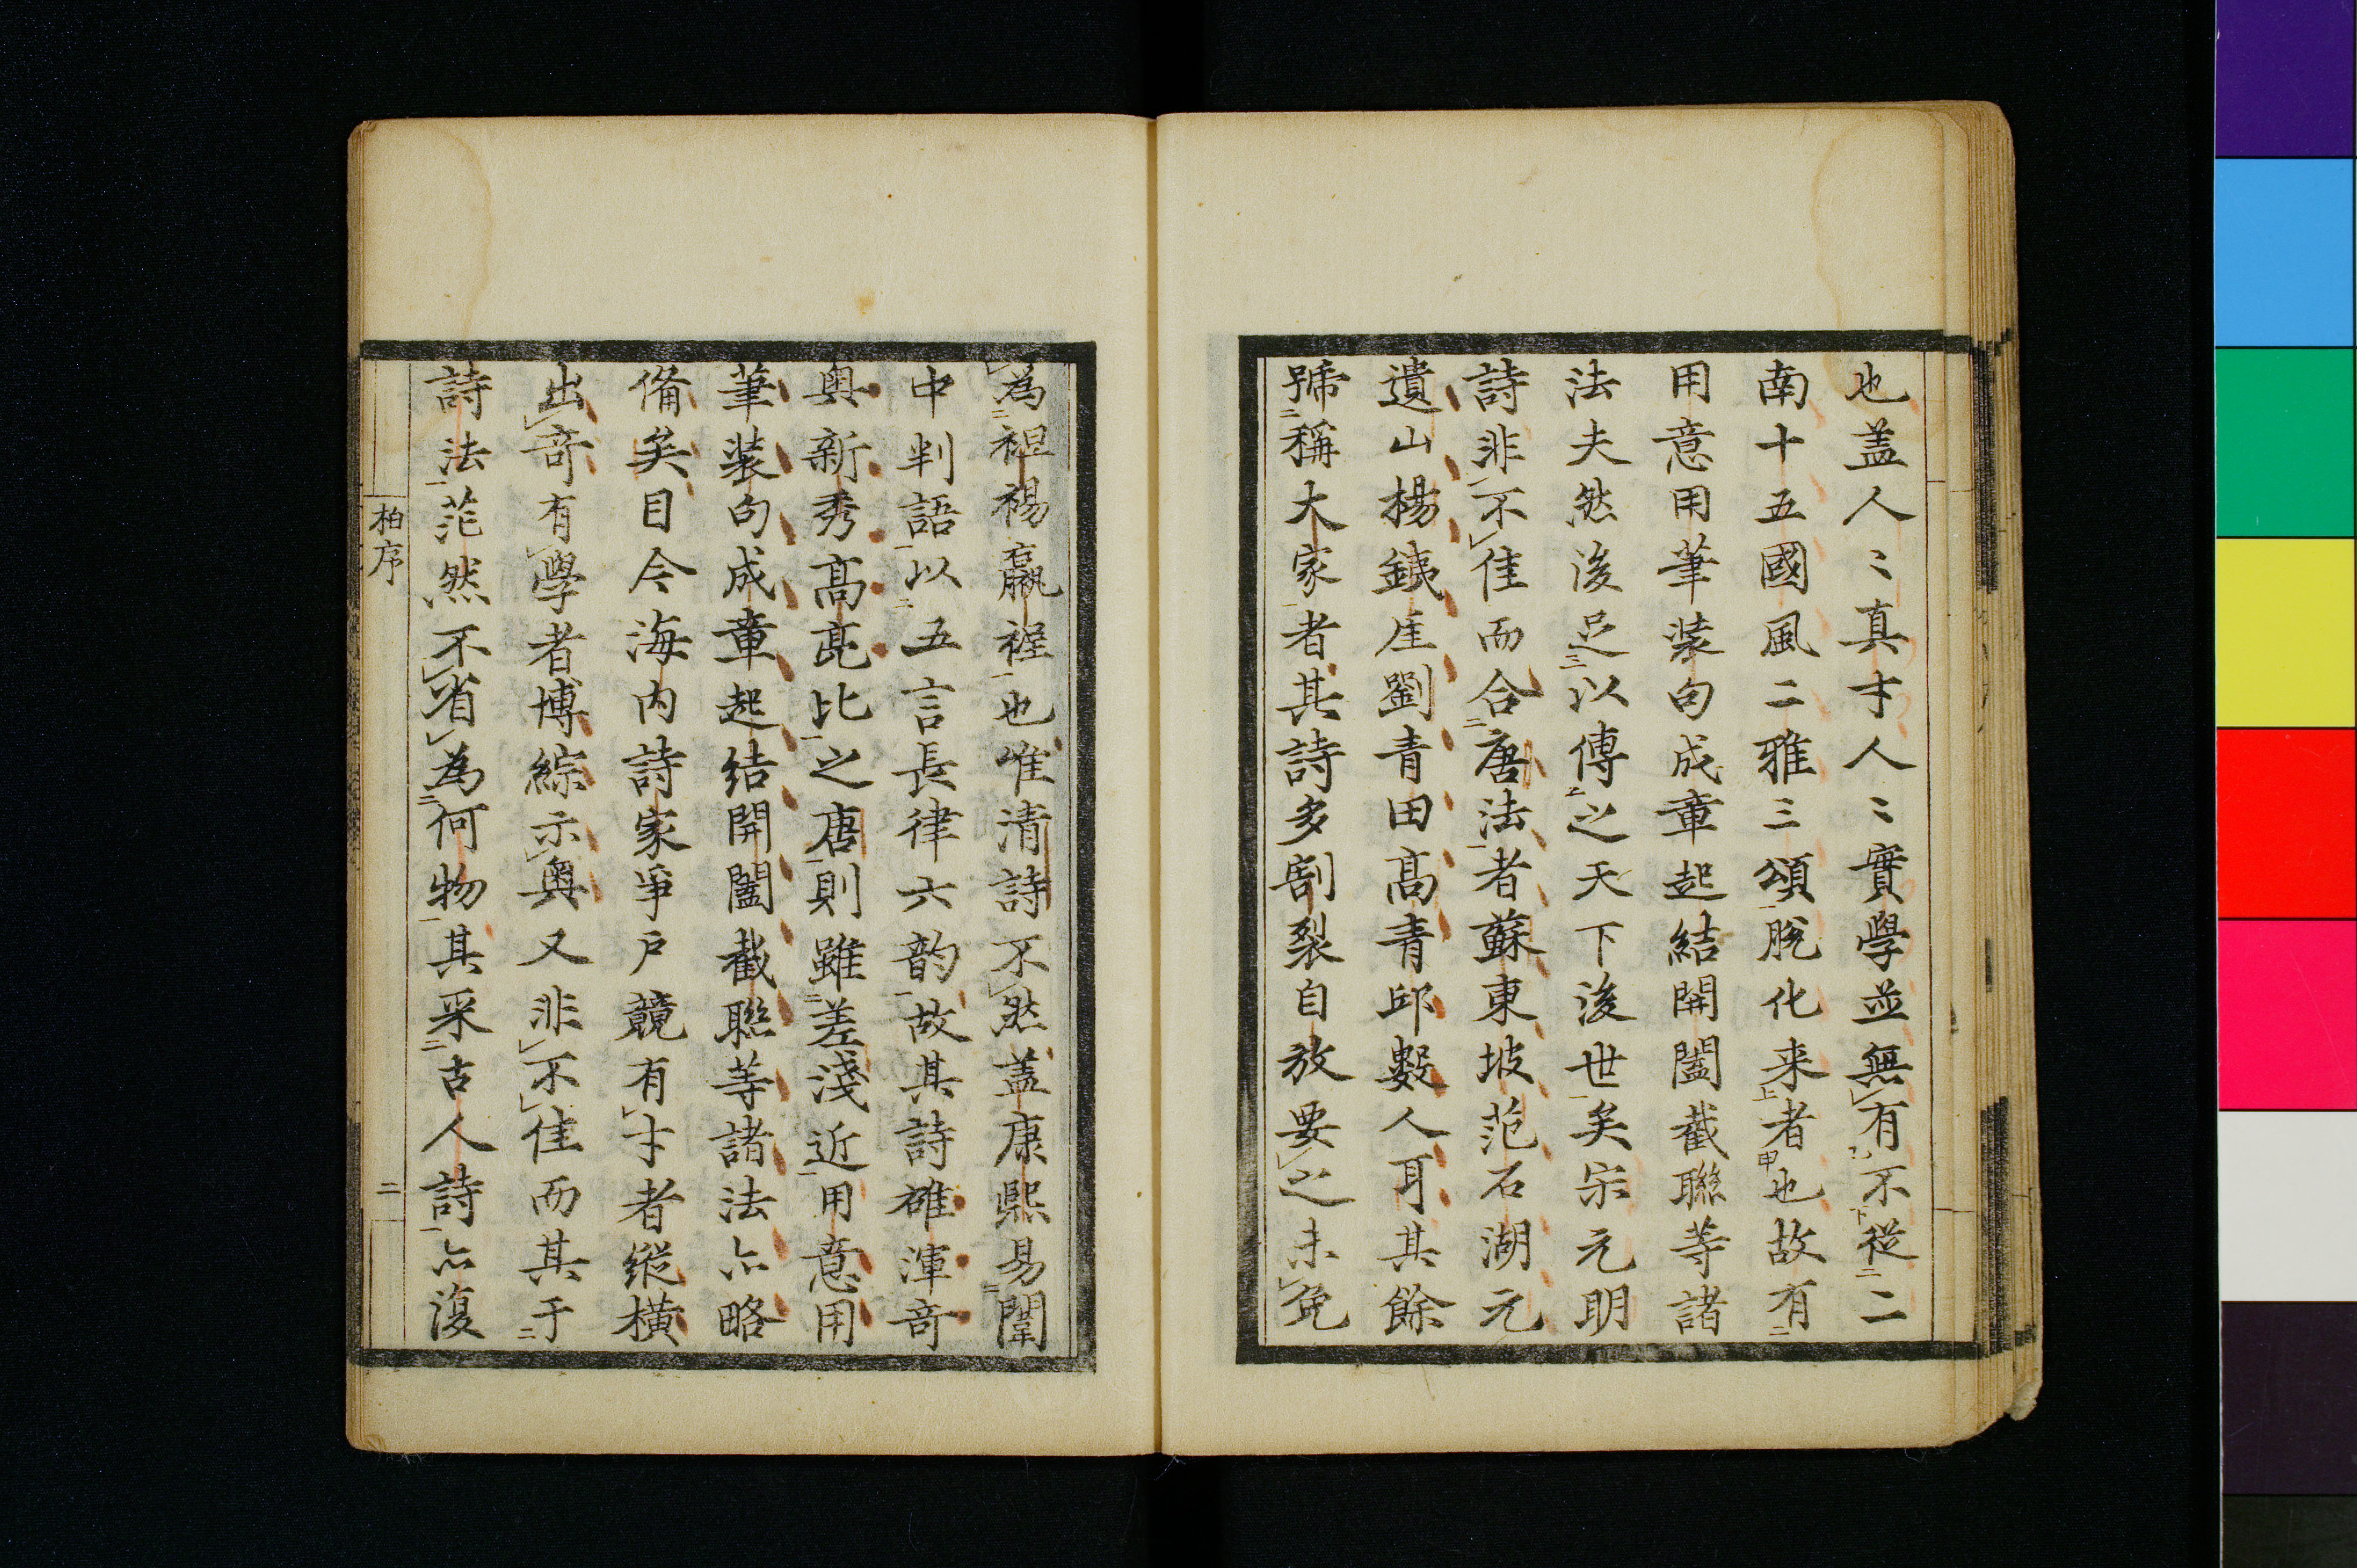 也盖人〻真才人〻實學並無有不從二
南十五國風二雅三頌脫化来者也故有
用意用筆装句成章起結開闔截聯等諸
法夫然後足以傳之天下後世矣宋元明
詩非不佳而合唐法者蘇東坡范石湖元
遺山楊鉄崖劉青田高青邱數人耳其餘
號稱大家者其詩多割裂自放要之未免
為袒裼臝裎也惟清詩不然盖康熙易闈
中判語以五言長律六韵故其詩雄渾奇
奥新秀高亮比之唐則雖差淺近用意用
筆装句成章起結開闔截聯等諸法亦略
備矣目今海内詩家爭戶競有才者縱橫
出奇有學者博綜示奥又非不佳而其于
詩法茫然不省為何物其采古人詩亦復
柏序
二